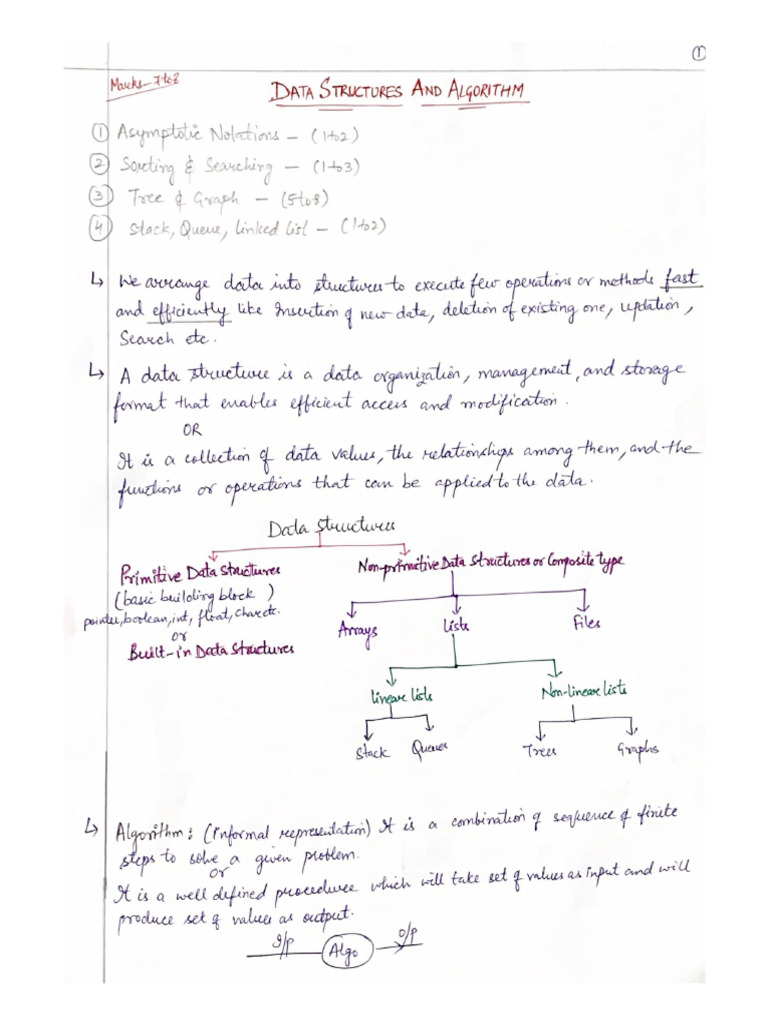 ①
Marks - 7 to 8
DATA STRUCTURES AND ALGORITHM
① Asymptotic Notations - (1 to 2)
② Sorting & Searching - (1 to 3)
③ Tree & Graph - (5 to 8)
④ Stack, Queue, Linked List - (1 to 2)
↳ We arrange data into structures to execute few operations or methods fast
and efficiently like Insertion of new data, deletion of existing one, updation,
Search etc.
↳ A data structure is a data organization, management, and storage
format that enables efficient access and modification.
OR
It is a collection of data values, the relationships among them, and the
functions or operations that can be applied to the data.
Data Structures
Primitive Data Structures
Non-primitive Data Structures or Composite type
(basic building block)
pointer, boolean, int, float, char etc.
or
Built-in Data Structures
Arrays Lists Files
Linear lists Non-linear lists
Stack Queues Trees Graphs
↳ Algorithm: (Informal representation) It is a combination of sequence of finite
steps to solve a given problem.
or
It is a well defined procedure which will take set of values as input and will
produce set of values as output.
I/P Algo O/P